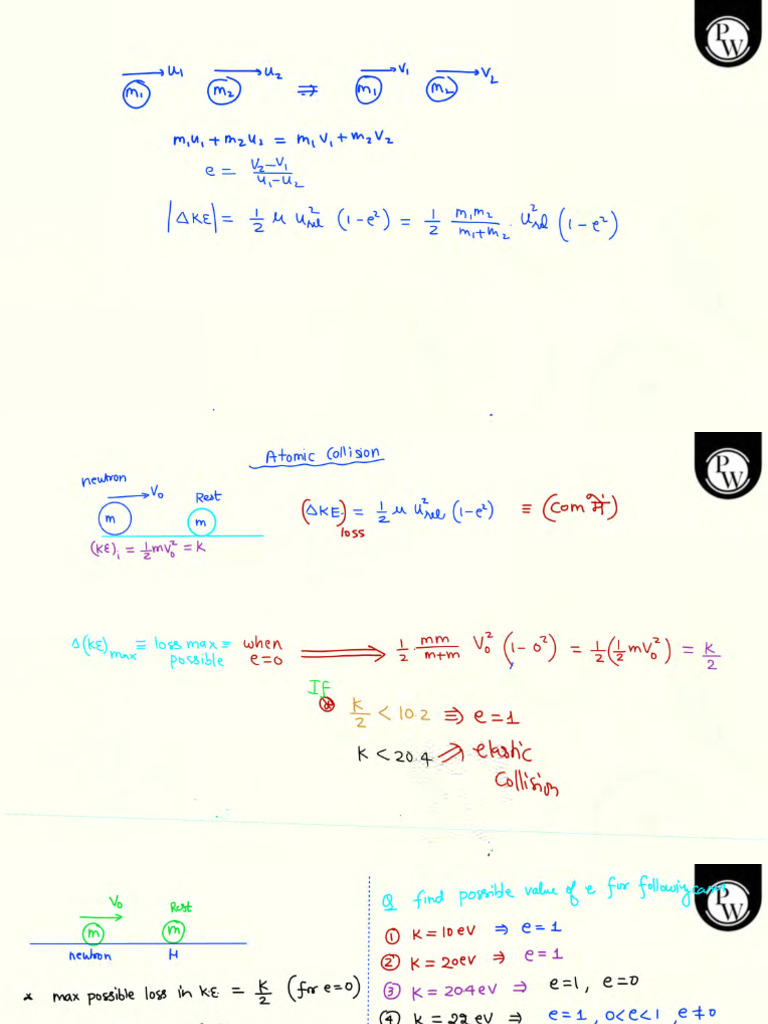 PW
u₁ u₂ v₁ v₂
m₁ m₂ ⇒ m₁ m₂
m₁u₁ + m₂u₂ = m₁v₁ + m₂v₂
e = (v₂ - v₁)/(u₁ - u₂)
|ΔKE| = 1/2 μ u²rel (1 - e²) = 1/2 m₁m₂/(m₁ + m₂) · u²rel (1 - e²)
PW
Atomic Collision
neutron
V₀ Rest
m m
(KE)i = 1/2 mv₀² = K
(ΔKE)loss = 1/2 μ u²rel (1 - e²) ≡ (Com में)
Δ(KE)max ≡ loss max ≡ when
possible e = 0
1/2 · mm/(m+m) V₀² (1 - 0²) = 1/2 (1/2 mV₀²) = K/2
If
K/2 < 10.2 ⇒ e = 1
K < 20.4 ⇒ elastic
collision
PW
V₀ Rest
m m
neutron H
* max possible loss in KE = K/2 (for e = 0)
Q find possible value of e for following cases
① K = 10 eV ⇒ e = 1
② K = 20 eV ⇒ e = 1
③ K = 20.4 eV ⇒ e = 1, e = 0
④ K = 22 eV ⇒ e = 1, 0 < e < 1, e ≠ 0